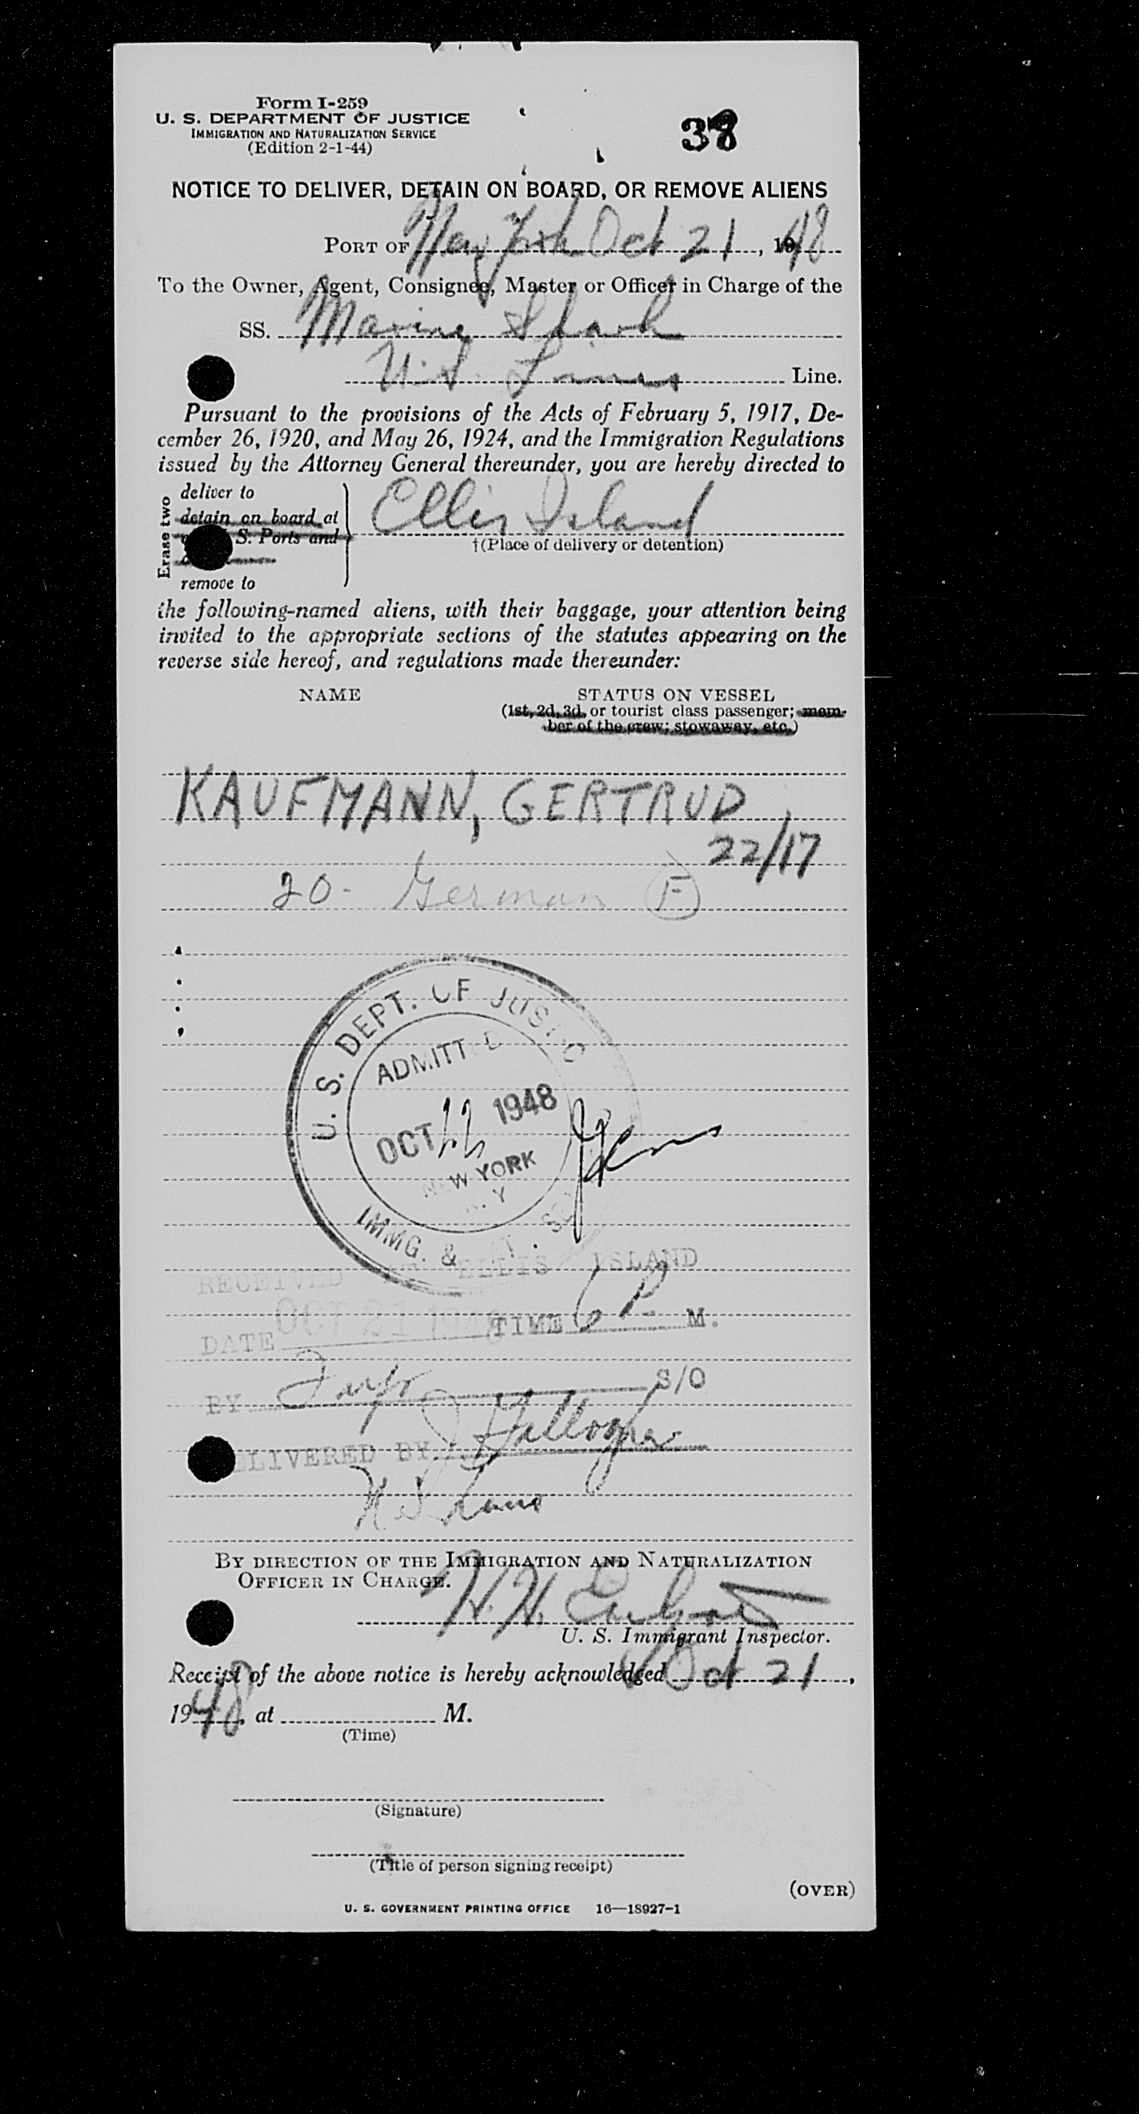 Form I-259
U. S. DEPARTMENT OF JUSTICE
IMMIGRATION AND NATURALIZATION SERVICE
(Edition 2-1-44)
38
NOTICE TO DELIVER, DETAIN ON BOARD, OR REMOVE ALIENS
PORT OF New York Oct 21, 1948
To the Owner, Agent, Consignee, Master or Officer in Charge of the
SS. Marine Shark
U.S. Lines Line.
Pursuant to the provisions of the Acts of February 5, 1917, De-
cember 26, 1920, and May 26, 1924, and the Immigration Regulations
issued by the Attorney General thereunder, you are hereby directed to
Erase two
deliver to
detain on board at
S. Ports and
remove to
Ellis Island
†(Place of delivery or detention)
the following-named aliens, with their baggage, your attention being
invited to the appropriate sections of the statutes appearing on the
reverse side hereof, and regulations made thereunder:
NAME STATUS ON VESSEL
(1st, 2d, 3d, or tourist class passenger; mem-
ber of the crew; stowaway, etc.)
KAUFMANN, GERTRUD
22/17
20- German F
U. S. DEPT. OF JUSTICE
ADMITTED
OCT 22 1948
NEW YORK
N. Y
IMMG. &
RECEIVED AT ELLIS ISLAND
DATE OCT 21 1948 TIME 6 P M.
BY S/O
DELIVERED BY J. Gallogher
U S Lines
BY DIRECTION OF THE IMMIGRATION AND NATURALIZATION
OFFICER IN CHARGE.
H. H.
U. S. Immigrant Inspector.
Receipt of the above notice is hereby acknowledged Oct 21,
1948, at M.
(Time)
(Signature)
(Title of person signing receipt)
(OVER)
U. S. GOVERNMENT PRINTING OFFICE 16—18927-1